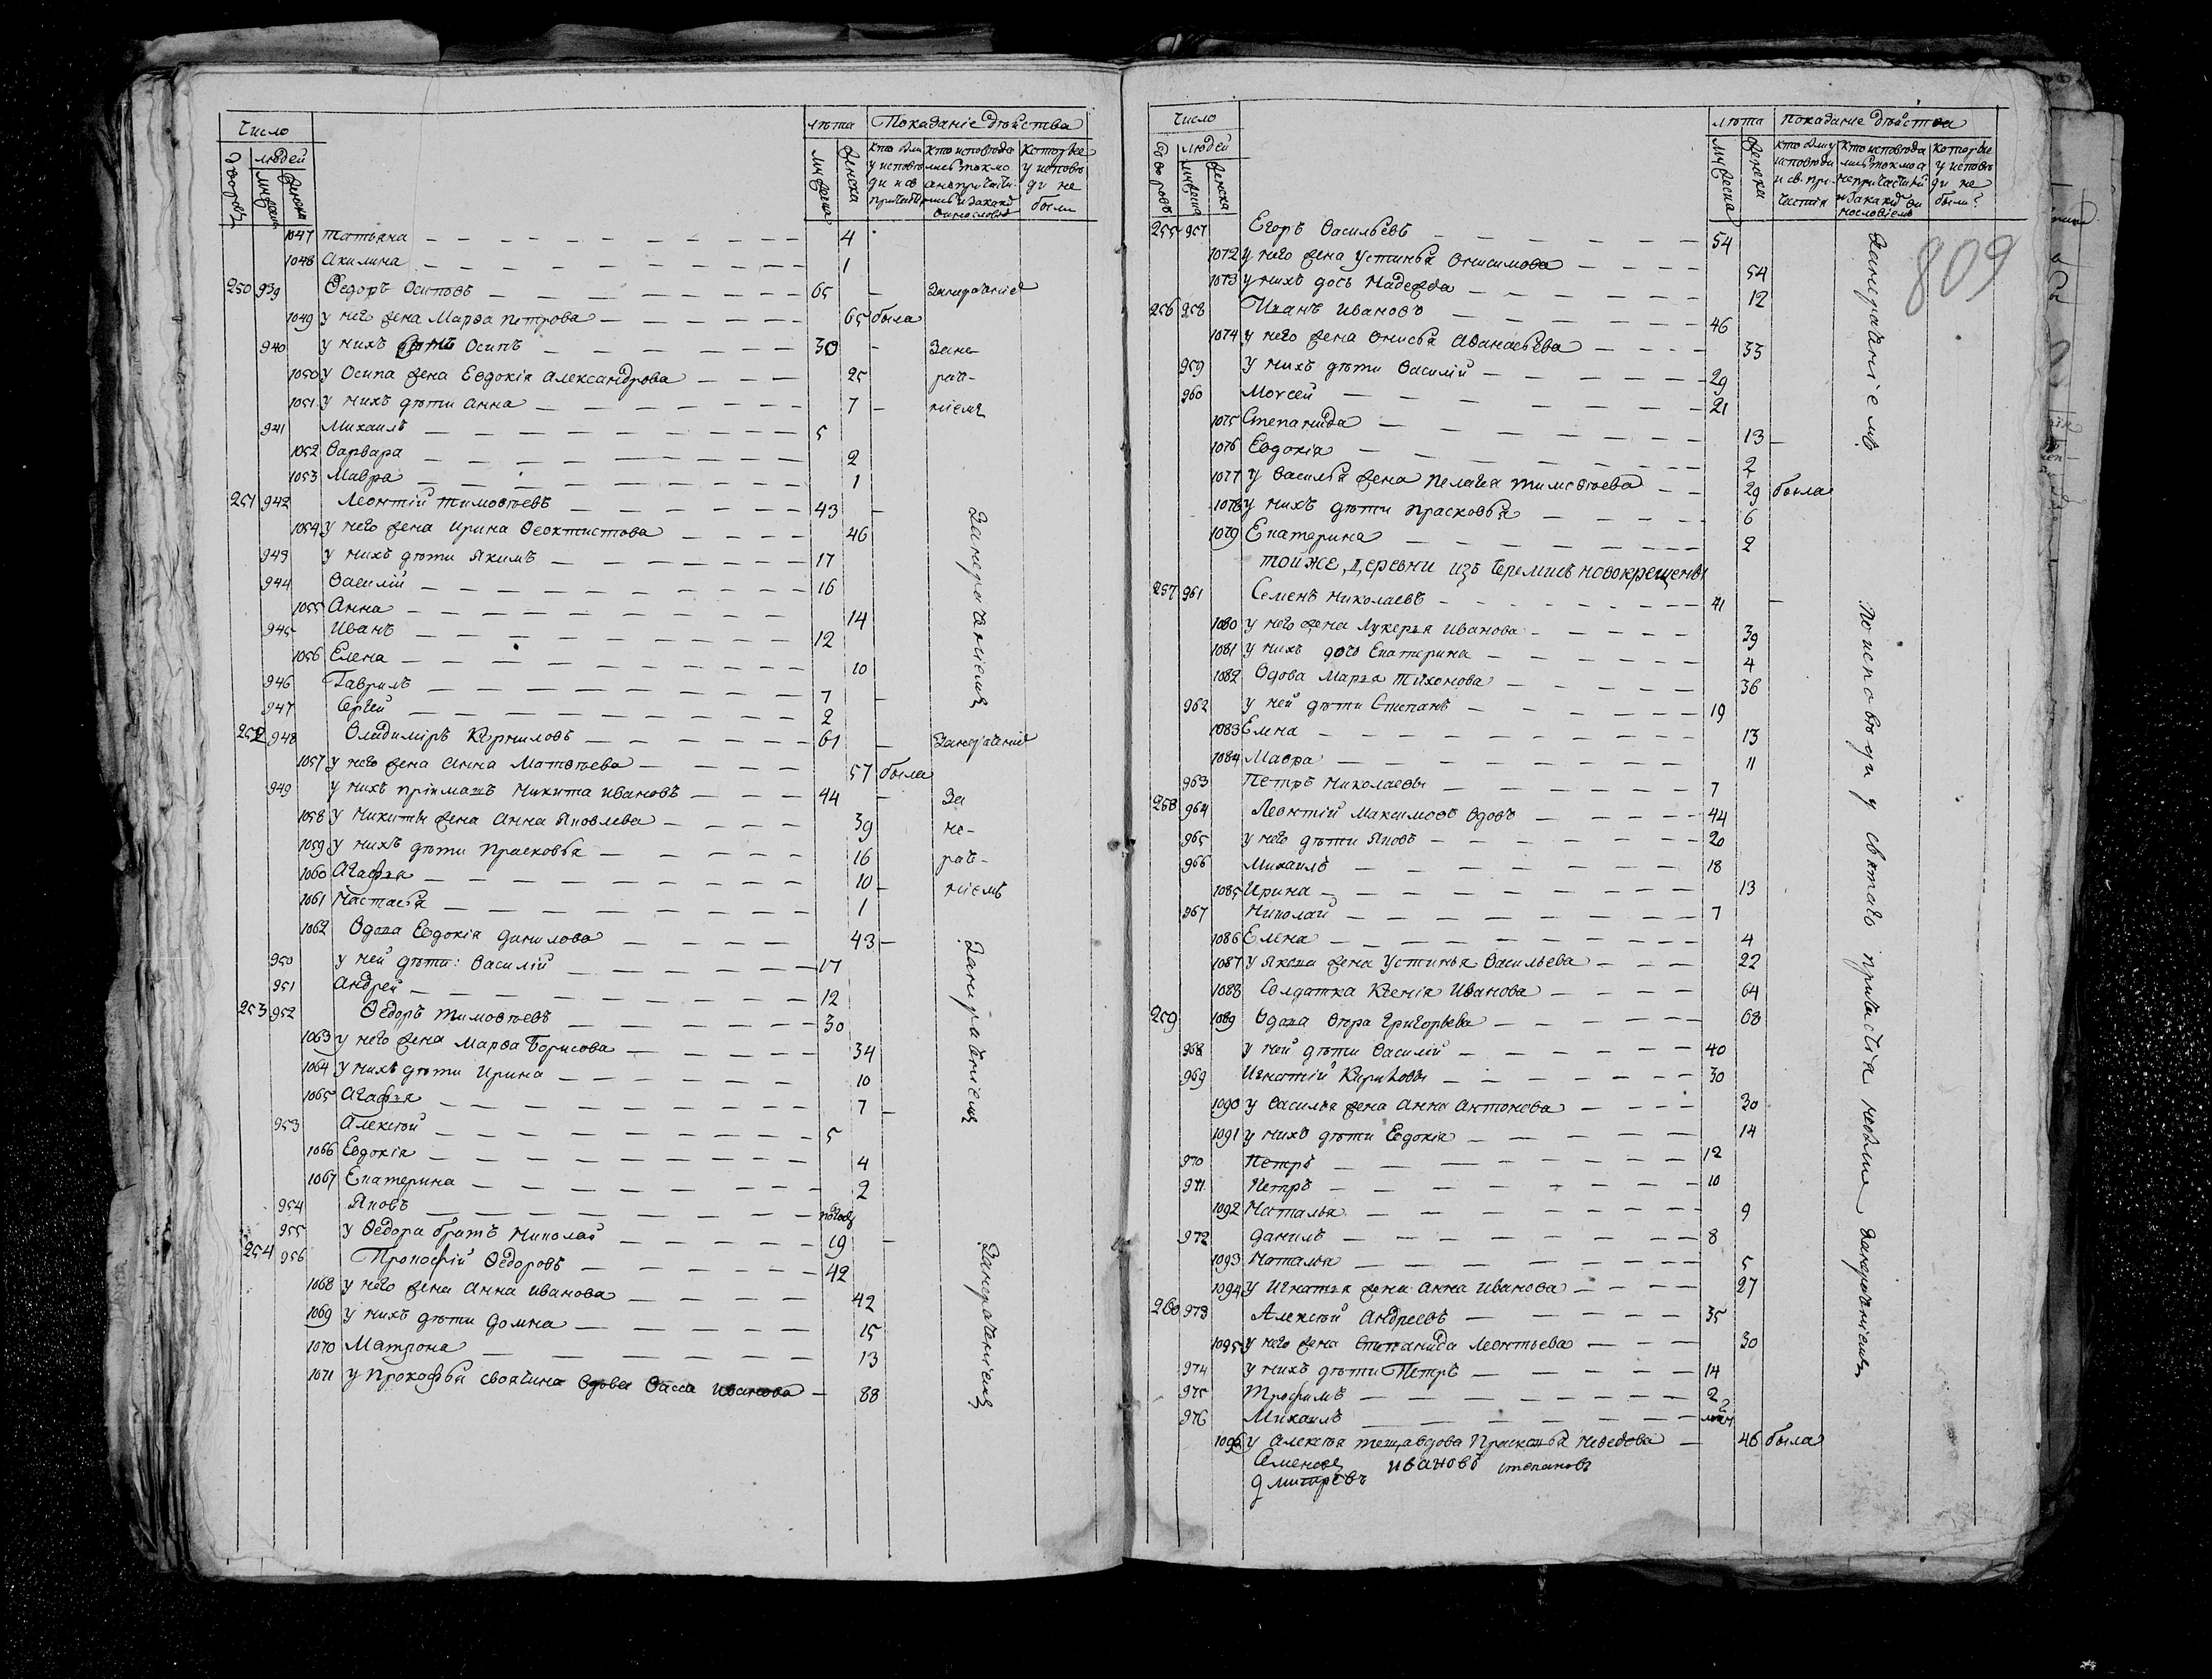 Число
людей
дворовъ
мужеска
женска
лѣта
мужеска
женска
Показаніе дѣйства
кто были у исповѣди и св. причастія
кто исповѣдались токмо а не причастились и за какимъ винословіемъ
которые у исповѣди не были
1047 татьяна 4
1048 акилина 1
250 939 Ѳедоръ Осиповъ 65 занерачениемъ
1049 у него жена Марѳа петрова 65 была
940 у нихъ Осипъ 30 Зане-
1050 у Осипа жена Евдокія александрова 25 рач-
1051 у нихъ дѣти анна 7 ніемъ
941 Михаилъ 5
1052 Варвара 2
1053 Мавра 1
251 942 Леонтій тимоѳеевъ 43 Занерачаніемъ
1054 у него жена ирина Ѳеоктистова 46
943 у нихъ дѣти якимъ 17
944 Василій 16
1055 Анна 14
945 Иванъ 12
1056 Елена 10
946 Гаврилъ 7
947 Сергей 2
252 948 Владимиръ Корниловъ 61
1057 у него жена анна Матвѣева 57 была
949 у нихъ пріимашъ никита ивановъ 44 За
1058 у никиты жена анна яковлева 39 не-
1059 у нихъ дѣти прасковья 16 рач-
1060 агафья 10 ніемъ
1061 настасья 1
1062 Вдова Евдокія данилова 43 Занерачениемъ
950 у ней дѣти: Василій 17
951 андрей 12
253 952 Ѳедоръ тимоѳеевъ 30
1063 у него жена марѳа борисова 34
1064 у нихъ дѣти ирина 10
1065 агафья 7
953 алексѣй 5
1066 Евдокія 4
1067 Екатерина 2
954 яковъ
955 у Ѳедора братъ николай 19
254 956 Прокофій Ѳедоровъ 42 Занерачениемъ
1068 у него жена анна иванова 42
1069 у нихъ дѣти домна 15
1070 матрона 13
1071 у прокофья своячина вдова Васса иванова 88
Число
людей
дворовъ
мужеска
женска
лѣта
мужеска
женска
показание дѣйства
кто были у исповѣди и св. причастія
кто исповѣдались токмо а не причастились и за какимъ винословіемъ
которые у исповѣди не были?
809
255 957 Егоръ Васильевъ 54 Занерачаніемъ
1072 у него жена устинья онисимова 54
1073 у нихъ дочь надежда 12
256 958 Иванъ ивановъ 46
1074 у него жена онисья аѳанасьева 33
959 у нихъ дѣти Василій 29
960 Моѵсей 21
1075 Степанида 13
1076 Евдокія 2
1077 у Василья жена пелагея тимоѳеева 29 была
1078 у нихъ дѣти прасковья 6
1079 Екатерина 2
тойже деревни изъ черемисъ новокрещены
257 961 Семенъ николаевъ 41
1080 у него жена лукерья иванова 39
1081 у нихъ дочь Екатерина 4
1082 Вдова марья тихонова 36
962 у ней дѣти Степанъ 19
1083 Елена 13
1084 Мавра 11
963 Петръ николаевы 7
258 964 Леонтій максимовъ вдовъ 44
965 у него дѣти яковъ 20
966 михаилъ 18
1085 ирина 13
967 николай 7
1086 Елена 4
1087 у якова жена устинья Васильева 22
1088 Солдатка Ксенія иванова 64
259 1089 Вдова Ѳекра григорьева 68
968 у ней дѣти Василій 40
969 игнатій Кириловы 30
1090 у василья жена анна антонова 30
1091 у нихъ дѣти Евдокія 14
970 Петръ 12
971 Петръ 10
1092 наталья 9
972 данилъ 8
1093 наталья 5
1094 у игнатья жена анна иванова 27
260 973 Алексѣй андреевъ 35
1095 у него жена степанида леонтьева 30
974 у нихъ дѣти Петръ 14
975 трофимъ 2
976 михаилъ
1096 у алексѣя теща вдова прасковья 46 была
По исповѣди у святаго причастія небыли занерачениемъ
Семеновъ ивановъ степановъ
дмитревъ